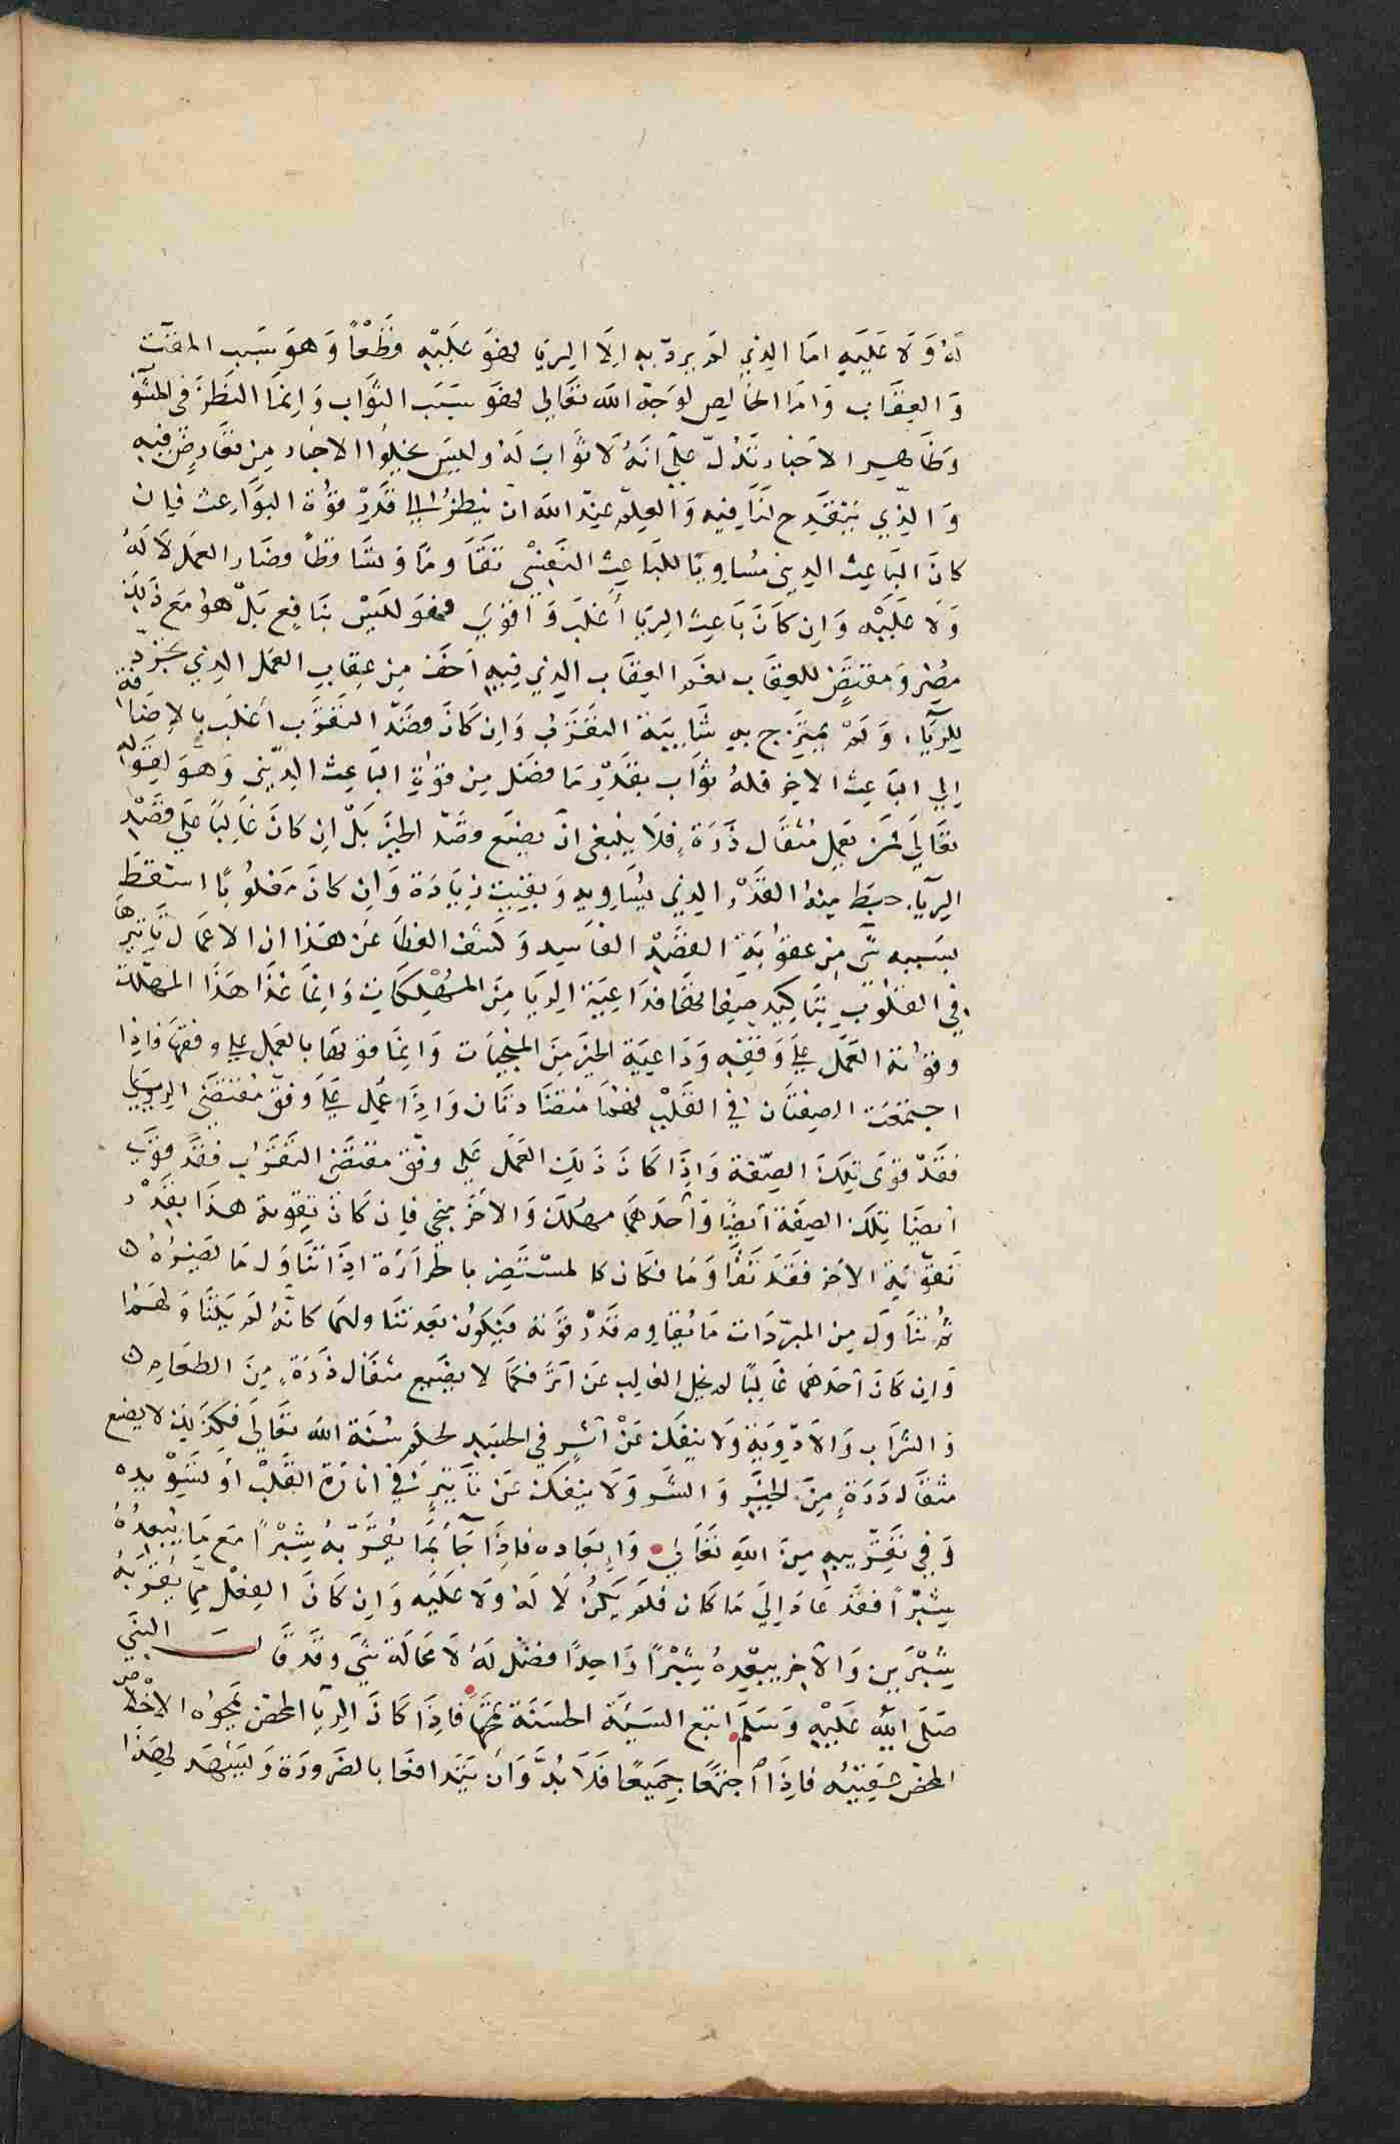 لَهُ وَلَا عَلَيْهِ امَا الذِي لَم يردّ بهِ اِلَّا الرِيَا فهُوَ عَلَيْهِ قَطْعًا وَهوَ سَبَب المقْت
وَ العِقَاب وَ امَا الخَالِص لوَجهْ اللّه تعَالي فهُوَ سَبَب الثَواب وَ اِنمَا النَظرْ في المشَو
وَظَاهِر الاخْبَار تَدُلّ عَلي انَهُ لَا ثَوَابَ لَهُ وليسَ يخلِوُا الاخبار مِن تعَارضٍ فيهِ
وَ الذِي يَنقَدِح لنَا فيهِ وَ العِلم عِندَ اللّه ان ينظرُ الي قَدْرِ قوُة البوَاعِث فاِن
كانَ البَاعِث الدِيني مُسَاوِيًا للبَاعِثِ النَفسْي تقَاومَا وَ تسَاقطَا وصَار العمَل لَا لَهُ
وَلَا عَلَيْهِ وَ اِن كَانَ بَاعِث الرِيَا أَغلَبَ وَ اقوَي فهوَ ليْسَ بنَافِع بَلْ هوُ مَع ذَلِكَ
مضِر وَمقتضٍ للعِقَاب نعَم العِقَاب الذِي فيهِ اخَف مِن عِقابِ العمَل الذِي تجَرّد
للرِيَا، وَ لَمْ يمتَزج بهِ شَايبَة التقَرُب وَ اِن كَانَ قصَدْ التقَرّب اَغلَب بالاِضَافة
اِلي البَاعِث الاخِر فلهُ ثوَاب بقَدْرِ مَا فضَل مِن قوُةِ البَاعِث الدِيني وَهوَ لِقَولهِ
تعَالي فمَن يعَمل مثقَال ذَرَةٍ، فلَا ينبغي اَنْ يضِيَع قصَدْ الخيَر بَلْ اِن كانَ غَالِبًا عَلي قصَدِ
الرِيَا، حبَط مِنهُ القَدْر الذِي يُسَاوِيهِ وَ بقيَت زِيَادَة وَ اِن كانَ مَغلوُبًا اسْقطَ
بسَببهِ شَيْ مِن عقوُبَةِ القصَدْ الفاسِد وَ كشَف الغطَا عَن هَذا ان الاعمَال تَاثيرهَا
فِي القلوُبِ بتَاكيدِ صِفاتهَا فدَاعِيَة الرِيَا مِنَ المُهْلِكَاتِ وَ اِنمَا غذَا هَذا المهلك
وقوُته العمَل عَلي وَفقهِ وَ دَاعِيَة الخيَر مِنَ المنجِيَات وَ اِنمَا قوتهَا بالعمَل علي وفقهَا فاذِا
اجتمَعَت الصِفتَان فِي القَلْبِ فهُمَا متضَادتَان وَ اِذَا عَمِل عَلَي وَفقْ مقتضَي الرِيَا
فقَدْ قوَي تِلكَ الصِفة وَ اِذَا كَانَ ذَلِكَ العمَل عَلي وفقْ مقتضَي التقَرُب فقَدْ قوَي
ايضًا تِلكَ الصِفَة ايضًا وَ احَدهمَا مهلكَ وَ الاخَر منجي فاِن كَان تقوِية هذَا بقَدْر
تقوِيَة الاخر فقَدْ تقَاوَمَا فكَان كالمسْتضِر بالحرَارَة اِذَا تنَاوَل مَا يضُرُهُ
ثُم تنَاوَل مِن المبرّدَات مَا يُقاوِم قَدْر قوَته فيَكوُن بَعد تنَاولهمَا كانَهُ لَم يتَنَاوَلهمَا
وَ اِن كَانَ احَدهمَا غَالِبًا لَم يخلِ الغالِب عَن اَثَر فكمَا لا يضِيع مثقَال ذَرَةٍ، مِنَ الطعَام
وَ الشرَاب وَ الادْوِيَةِ وَ لا ينفَكَ عَنْ اثَرٍ فِي الجسَدِ بحكم سُنَة اللّه تعَالي فكَذَلِكَ لا يضيع
مثقَال ذَرَةٍ مِنَ الخيَرِ وَ الشَر وَ لَا ينفكَ عَن تَاثيرٍ فِي انارَةِ القَلْب اَو تسْوِيدِه
وَ فِي تقَرِيبهِ مِنَ اللّهِ تعَالي وَ ابعَادِه فاذَا جَآ بمَا يُقَرّ بهُ شِبْرًا مَع مَا يُبعِدُهُ
شِبْرًا فقَدْ عَادَ اِليَ مَا كَان فلَم يَكُن لَا لَهُ وَلَا عَلَيهِ وَ اِن كَانَ الفِعْل ممّا يُقرّبهُ
شِبْرَين وَ الآخِر يبعِدهُ شِبْرًا وَاحِدًا فضَل لَهُ لَا محَالَة شَيْ وقَدْ قَال النَبي
صَلي اللّهُ عَلَيْهِ وَ سَلَّم اتبع السَيئَة الحسَنَة تمحهَا فاذِا كَانَ الرِيَا المحض يمحوُه الاخْلاص
المحض عقيبهُ فاذِا اجتمَعَا جمَيعًا فَلَا بُدَّ وَ اَن يتَدافعَا بالضَرورَة وَ يشهَد لهِذَا